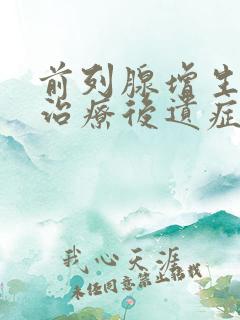 前列腺增生
治療後遺症
我心天涯
未经同意禁止散载